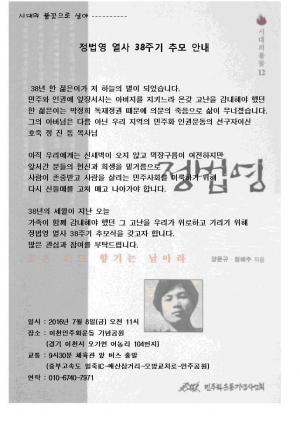 시대의 불꽃으로 살아
시대의불꽃
12
정법영 열사 38주기 추모 안내
38년 한 젊은이가 저 하늘의 별이 되었습니다.
민주와 인권에 앞장서시는 아버지를 지키느라 온갖 고난을 감내해야 했던
한 젊은이는 박정희 독재정권 때문에 의문의 죽음으로 삶이 무너졌습니다.
그의 아버님은 다름 아닌 우리 지역의 민주화 인권운동의 선구자이신
호죽 정 진 동 목사님
아직 우리에게는 신새벽이 오지 않고 먹장구름이 여전하지만
앞서간 분들의 헌신과 희생을 밑거름으로
사람이 존중받고 사람을 살리는 민주사회를 이룩하기 위해
다시 신들메를 고쳐 매고 나아가야 합니다.
정법영
38년의 세월이 지난 오늘
가족이 함께 감내해야 했던 그 고난을 우리가 위로하고 기리기 위해
정법영 열사 38주기 추모식을 갖고자 합니다.
많은 관심과 참여를 부탁드립니다.
향기는 남아라
지음
일시 : 2016년 7월 8일(금) 오전 11시
장소 : 이천민주화운동 기념공원
(경기 이천시 모가면 어농리 104번지)
교통 : 9시30분 체육관 앞 버스 출발
연락 : 010-6740-7971